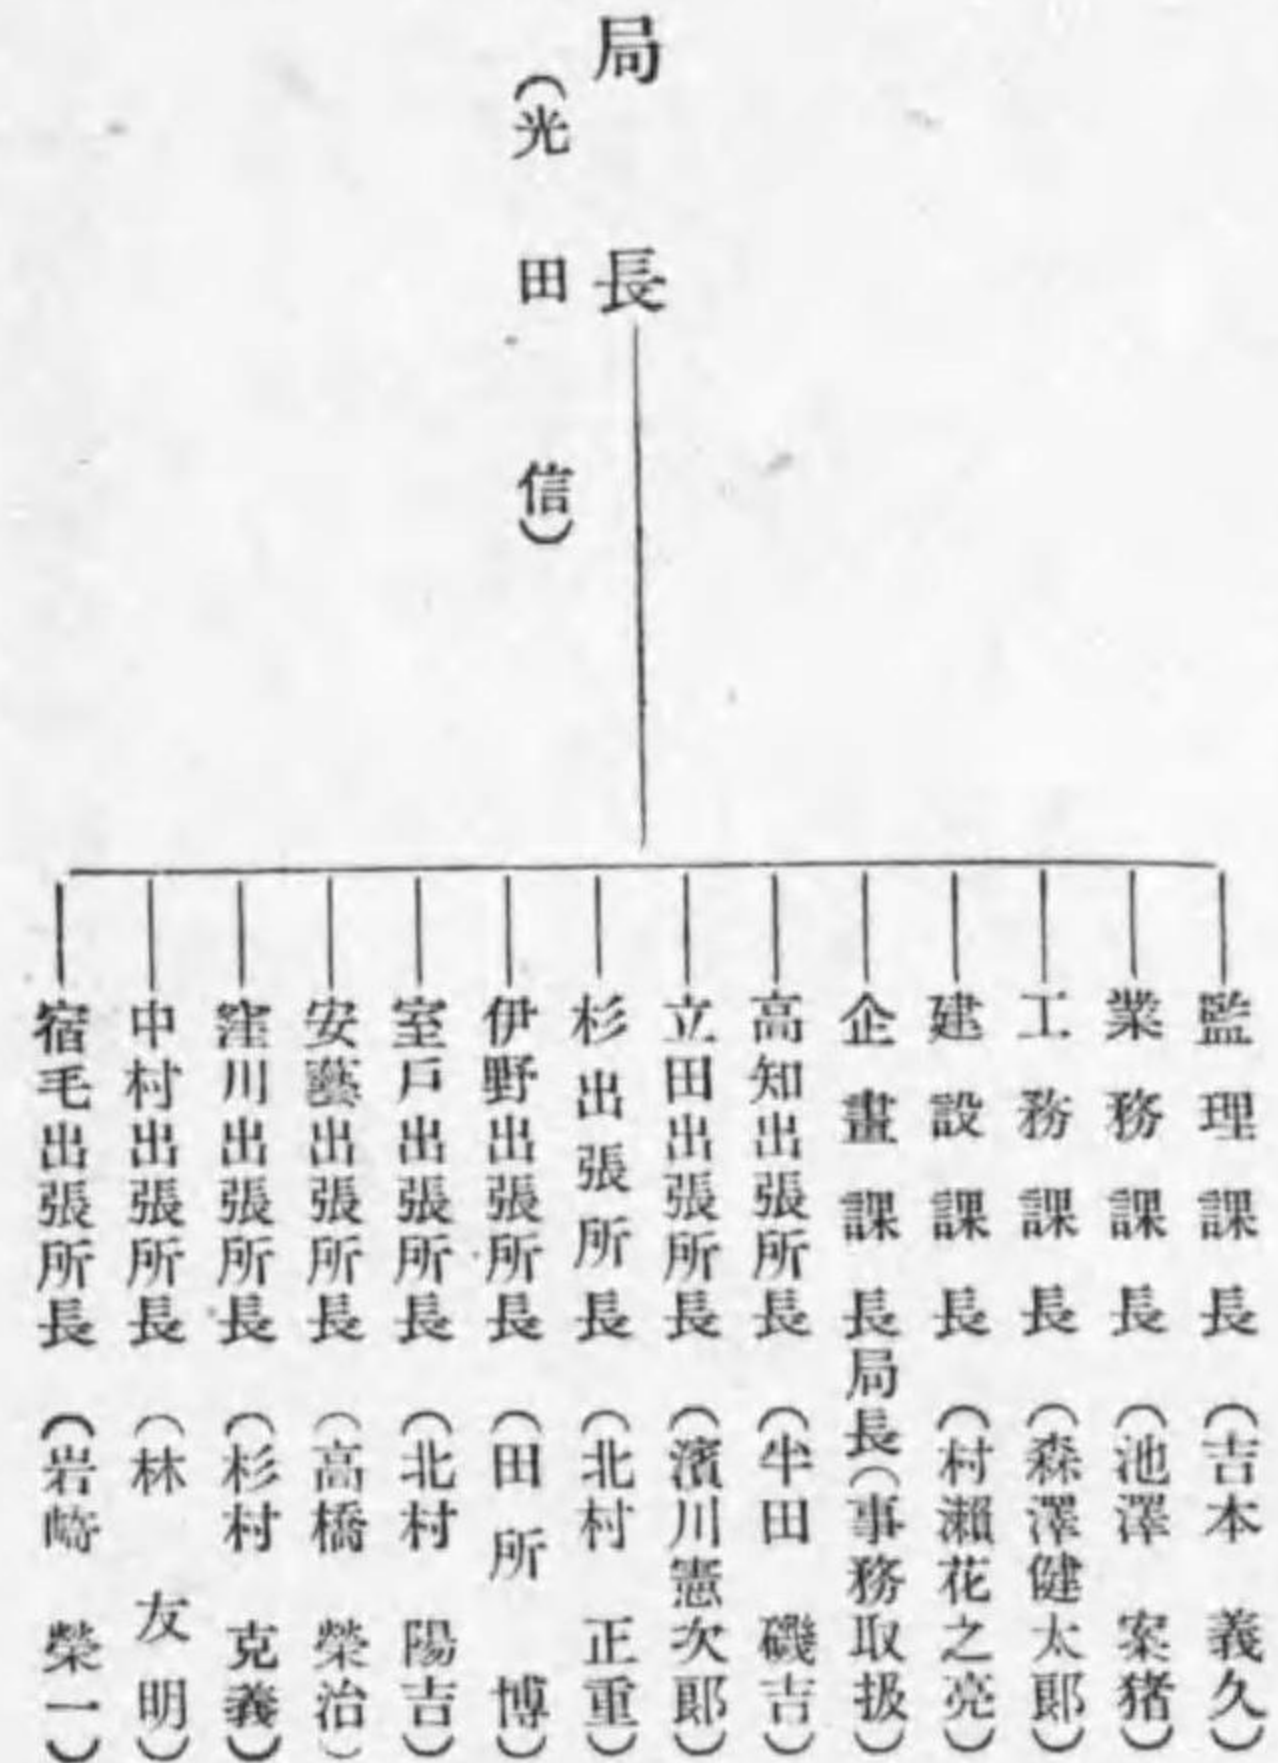 局長
(光田信)
監理課長(吉本義久)
業務課長(池澤案猪)
工務課長(森澤健太郎)
建設課長(村瀬花之亮)
企畫課長局長(事務取扱)
高知出張所長(半田磯吉)
立田出張所長(濱川憲次郎)
杉出張所長(北村正重)
伊野出張所長(田所博)
室戸出張所長(北村陽吉)
安藝出張所長(高橋榮治)
窪川出張所長(杉村克義)
中村出張所長(林友明)
宿毛出張所長(岩崎榮一)